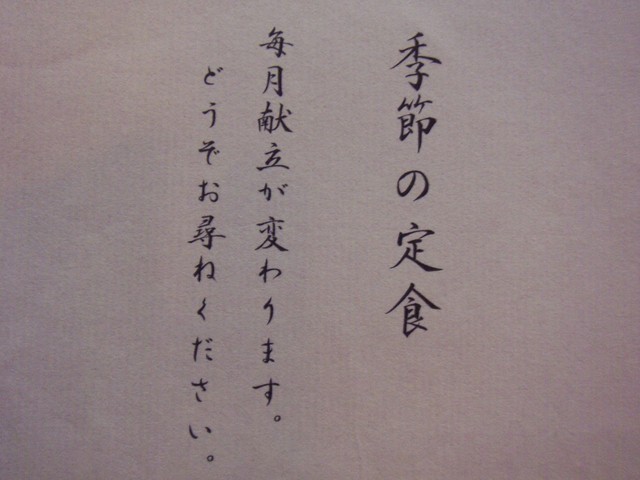 季節の定食
毎月献立が変わります。
どうぞお尋ねください。